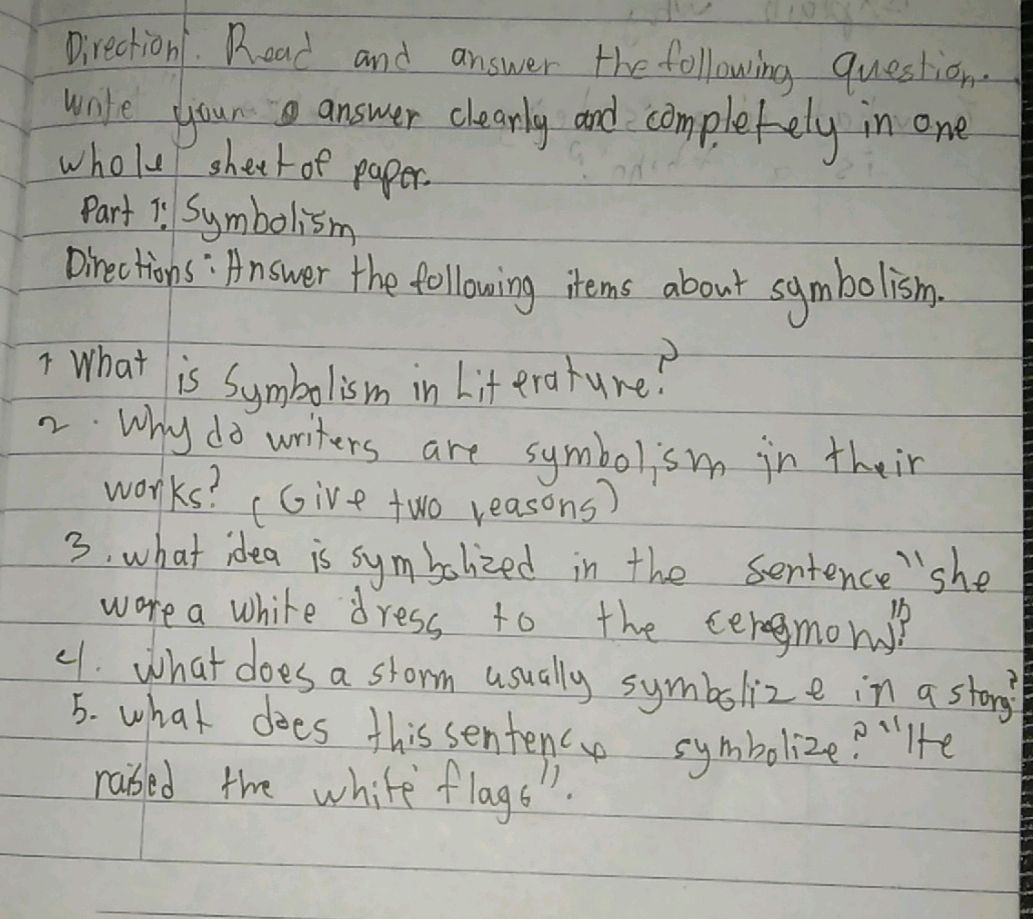 Direction. Read and answer the following question.
Write your answer clearly and completely in one
whole sheet of paper.
Part 1: Symbolism
Directions: Answer the following items about symbolism.
1 What is Symbolism in Literature?
2. Why do writers are symbolism in their
works? (Give two reasons)
3. what idea is symbolized in the sentence "she
wore a white dress to the ceremony"?
4. What does a storm usually symbolize in a story?
5. what does this sentence symbolize? "He
raised the white flags".